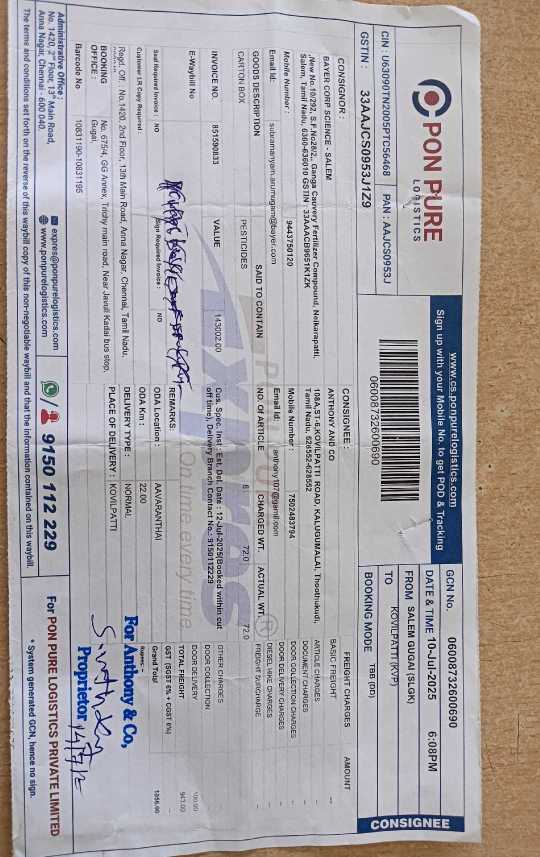 PON PURE
LOGISTICS
CIN : U63090TN2005PTC56468
PAN : AAJCS0953J
GSTIN : 33AAJCS0953J1Z9
www.cs.ponpurelogistics.com
Sign up with your Mobile No. to get POD & Tracking
06008732600690
GCN No. 06008732600690
DATE & TIME 10-Jul-2025 6:08PM
FROM SALEM GUGAI (SLGK)
TO KOVILPATTI (KVP)
BOOKING MODE TBB (DD)
CONSIGNEE
CONSIGNOR :
BAYER CORP SCIENCE - SALEM
,New No.10/292, S.F.No28/2,, Ganga Cauvery Fertilizer Compound, Neikarapatti,
Salem, Tamil Nadu, 6360-636010 GSTIN : 33AAACB9651K1ZK
Mobile Number : 9443750120
Email Id: subramanyam.arumugam@bayer.com
CONSIGNEE :
ANTHONY AND CO
108A,ST-6,KOVILPATTI ROAD, KALUGUMALAI, Thoothukudi,
Tamil Nadu, 628552-628552
Mobile Number : 7502483794
Email Id: anthony107@gamil.com
GOODS DESCRIPTION SAID TO CONTAIN NO. OF ARTICLE CHARGED WT. ACTUAL WT.
CARTON BOX PESTICIDES 6 72.0 72.0
INVOICE NO. 8511590833 VALUE 143002.00
Cus. Spec. Inst : Est. Del. Date : 12-Jul-2025(Booked within cut
off time), Delivery Branch Contact No.: 9150112229
E-Waybill No
REMARKS:
Seal Required Invoice : NO Sign Required Invoice : NO
ODA Location : AAVARANTHAI
Customer LR Copy Required :
ODA Km : 22.00
Regd. Off : No.1420, 2nd Floor, 13th Main Road, Anna Nagar, Chennai, Tamil Nadu,
DELIVERY TYPE : NORMAL
BOOKING OFFICE : No. 675/4, GG Annex, Trichy main road, Near Javuli Kadai bus stop, Gugai,
PLACE OF DELIVERY : KOVILPATTI
Barcode No 10831190-10831195
FREIGHT CHARGES AMOUNT
BASIC FREIGHT --
ARTICLE CHARGES -
DOCUMENT CHARGES -
DOOR COLLECTION CHARGES -
DOOR DELIVERY CHARGES -
DIESEL HIKE CHARGES -
FREIGHT SURCHARGE -
OTHER CHARGES
DOOR COLLECTION
DOOR DELIVERY 100.00
TOTAL FREIGHT 943.00
GST (SGST 6% + CGST 6%)
Grand Total 1056.00
Rupees:
PON PURE
EXPRESS
On time every time
For Anthony & Co,
Proprietor
Administrative Office :
No. 1420, 2nd Floor, 13th Main Road,
Anna Nagar, Chennai - 600 040.
expres@ponpurelogistics.com
www.ponpurelogistics.com
9150 112 229
For PON PURE LOGISTICS PRIVATE LIMITED
The terms and conditions set forth on the reverse of this waybill copy of this non-negotiable waybill and that the information contained on this waybill.
* System generated GCN, hence no sign.